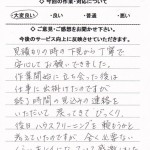 ◇ 今回の作業・対応について ◇
・大変良い ・良い ・普通 ・悪い
◇ご意見・ご感想をお聞かせ下さい。
今後のサービス向上に反映させていただきます。
見積りの時の下見から丁寧で
安心してお願いできました。
作業開始に立ち会った後は
仕事に出掛けたのですが
終了時間の見込みの連絡を
いただいて、戻ってびっくり。
後はハウスクリーニングを頼もうかと